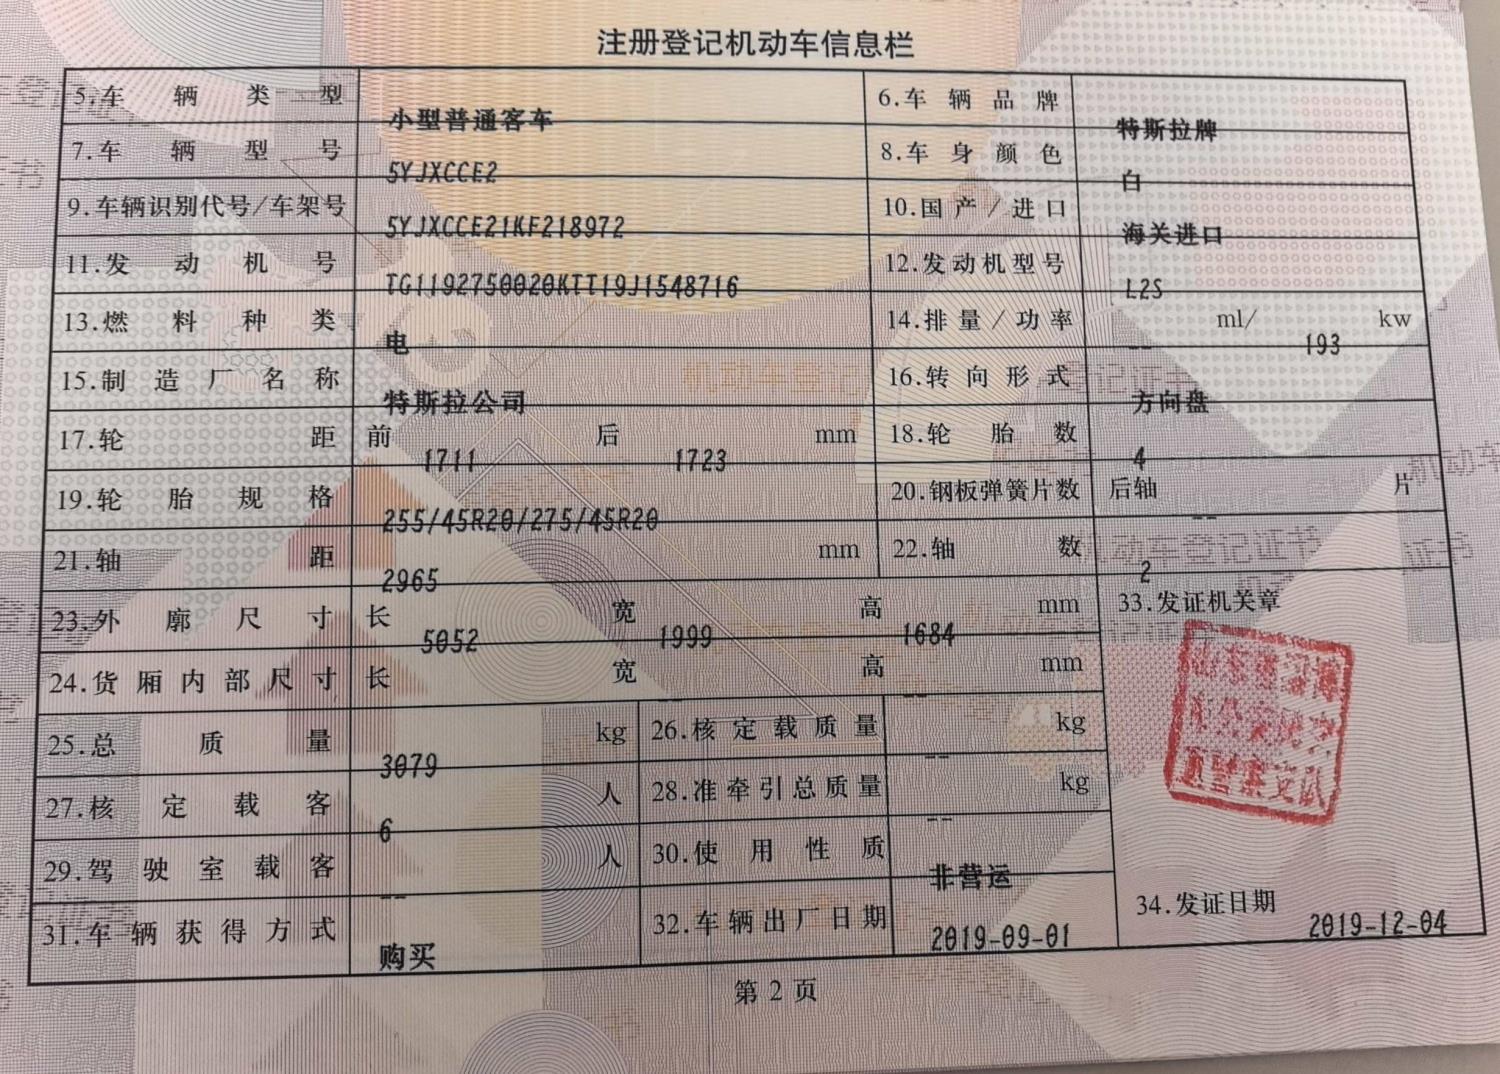 注册登记机动车信息栏
5.车辆类型 小型普通客车 6.车辆品牌 特斯拉牌
7.车辆型号 5YJXCCE2 8.车身颜色 白
9.车辆识别代号/车架号 5YJXCCE21KF218972 10.国产/进口 海关进口
11.发动机号 TG1192750020KTT19J1548716 12.发动机型号 L2S
13.燃料种类 电 14.排量/功率 -- ml/ 193 kw
15.制造厂名称 特斯拉公司 16.转向形式 方向盘
17.轮距 前 1711 后 1723 mm 18.轮胎数 4
19.轮胎规格 255/45R20/275/45R20 20.钢板弹簧片数 后轴 -- 片
21.轴距 2965 mm 22.轴数 2
23.外廓尺寸 长 5052 宽 1999 高 1684 mm 33.发证机关章
24.货厢内部尺寸 长 宽 高 -- mm
25.总质量 3079 kg 26.核定载质量 -- kg
27.核定载客 6 人 28.准牵引总质量 -- kg
29.驾驶室载客 -- 人 30.使用性质 非营运
31.车辆获得方式 购买 32.车辆出厂日期 2019-09-01 34.发证日期 2019-12-04
第2页